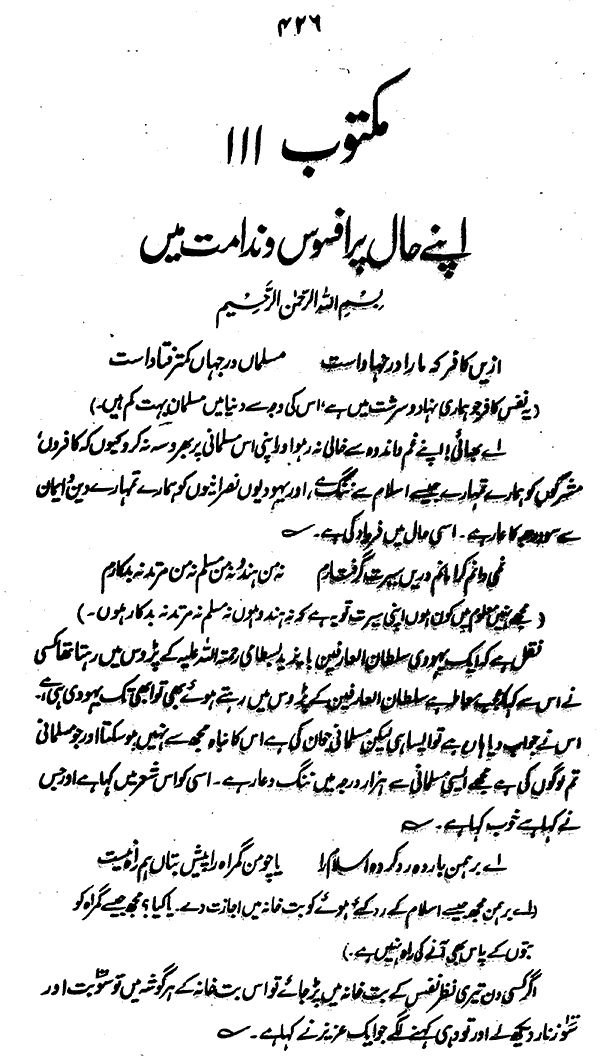 ۴۲۶
مکتوب ۱۱۱
اپنے حال پر افسوس و ندامت میں
بِسْمِ اللّٰہِ الرَّحْمٰنِ الرَّحِیْمِ
ازیں کافر کہ ما را در نہاد است مسلماں در جہاں کمتر فتاد است
(یہ نفس کافر جو ہماری نہاد و سرشت میں ہے، اس کی وجہ سے دنیا میں مسلمان بہت کم ہیں۔)
اے بھائی! اپنے غم و اندوہ سے خالی نہ رہو اور اپنی اس مسلمانی پر بھروسہ نہ کرو کیوں کہ کافروں،
مشرکوں کو ہمارے تمہارے جیسے اسلام سے ننگ ہے، اور یہودیوں نصرانیوں کو ہمارے تمہارے دین و ایمان
سے سو درجہ کا عار ہے۔ اسی حال میں فریاد کی ہے۔
نمی دانم کرا مانم دریں سیرت گرفتارم نہ من ہندو نہ من مسلم نہ من مرتد نہ بدکارم
(مجھے نہیں معلوم میں کون ہوں اپنی سیرت تو یہ ہے کہ نہ ہندو ہوں نہ مسلم نہ مرتد نہ بدکار ہوں۔)
نقل ہے کہ ایک یہودی سلطان العارفین بایزید بسطامی رحمۃ اللہ علیہ کے پڑوس میں رہتا تھا کسی
نے اس سے کہا عجب معاملہ ہے سلطان العارفین کے پڑوس میں رہتے ہوئے بھی تو ابھی تک یہودی ہی ہے۔
اس نے جواب دیا ہاں ہے تو ایسا ہی لیکن مسلمانی جو ان کی ہے اس کا نباہ مجھ سے نہیں ہو سکتا اور جو مسلمانی
تم لوگوں کی ہے مجھے ایسی مسلمانی سے ہزار درجہ میں ننگ و عار ہے۔ اسی کو اس شعر میں کہا ہے اور جس
نے کہا ہے خوب کہا ہے۔
اے برہمن بار دہ رد کردہ اسلام را یا چو من گمراہ را پیش بتاں ہم راہ نیست
(اے برہمن مجھ جیسے اسلام کے رد کئے ہوئے کو بت خانہ میں اجازت دے۔ یا کیا؟ مجھ جیسے گمراہ کو
بتوں کے پاس بھی آنے کی راہ نہیں ہے۔)
اگر کسی دن تیری نظر نفس کے بت خانہ میں پڑ جائے تو اس بت خانہ کے ہر گوشہ میں تو سو بت اور
سو زنار دیکھ لے اور تو وہی کہنے لگے جو ایک عزیز نے کہا ہے۔